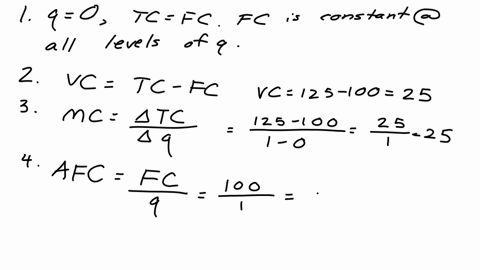 1. q = 0, TC = FC. FC is constant @
all levels of q.
2. VC = TC - FC    VC = 125 - 100 = 25
3. MC = ΔTC / Δq = 125 - 100 / 1 - 0 = 25 / 1 = 25
4. AFC = FC / q = 100 / 1 =